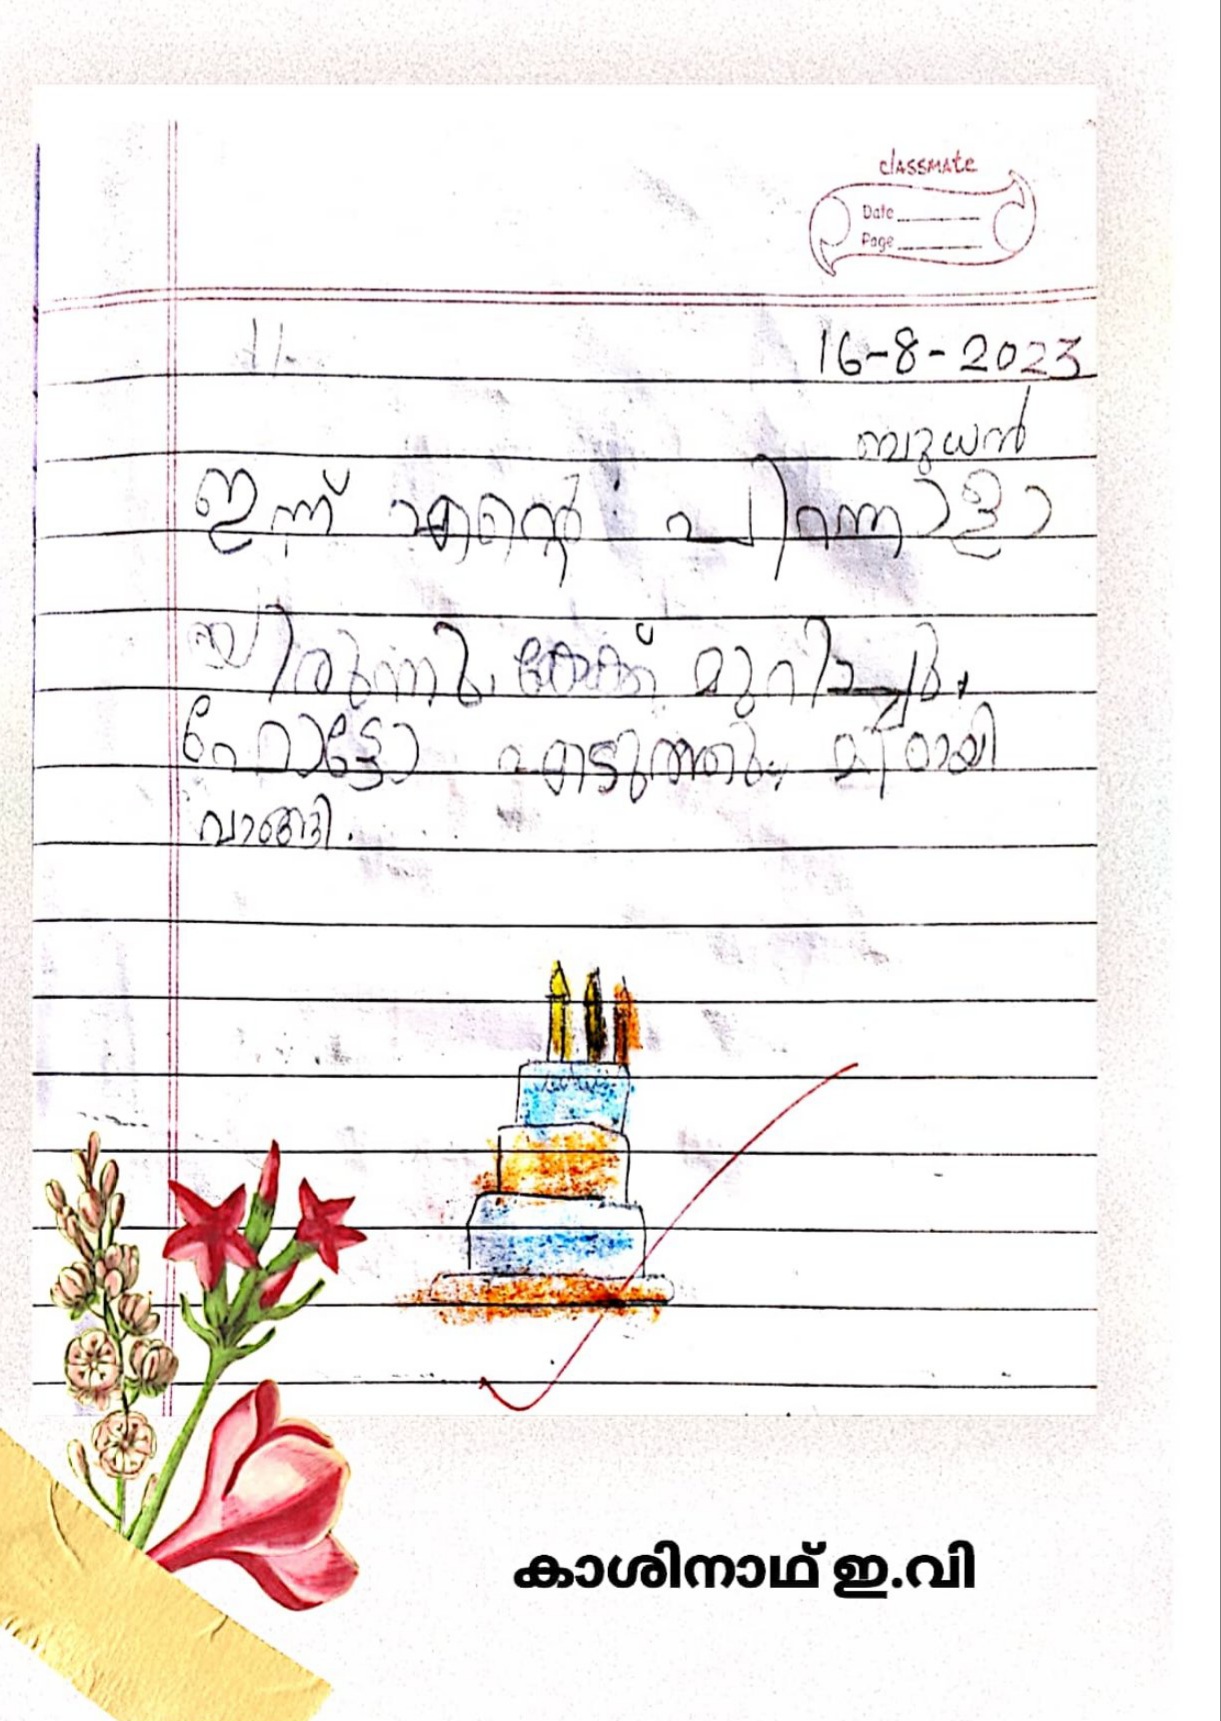 classmate
Date
Page
16-8-2023
ബുധൻ
ഇന്ന് എന്റെ പിറന്നാളാ
യിരുന്നു. കേക്ക് മുറിച്ചു.
ഫോട്ടോ എടുത്തു. മിഠായി
വാങ്ങി.
കാശിനാഥ് ഇ.വി